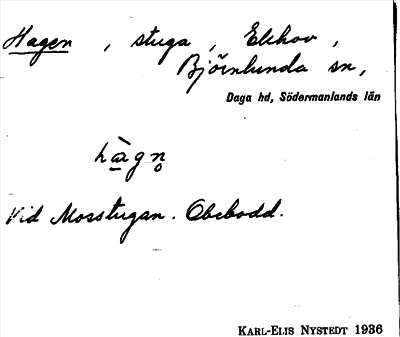 Hagen , stuga , Ekhov ,
Björnlunda sn,
Daga hd, Södermanlands län
hàgn̥
Vid Mosstugan. Obebodd.
KARL-ELIS NYSTEDT 1936